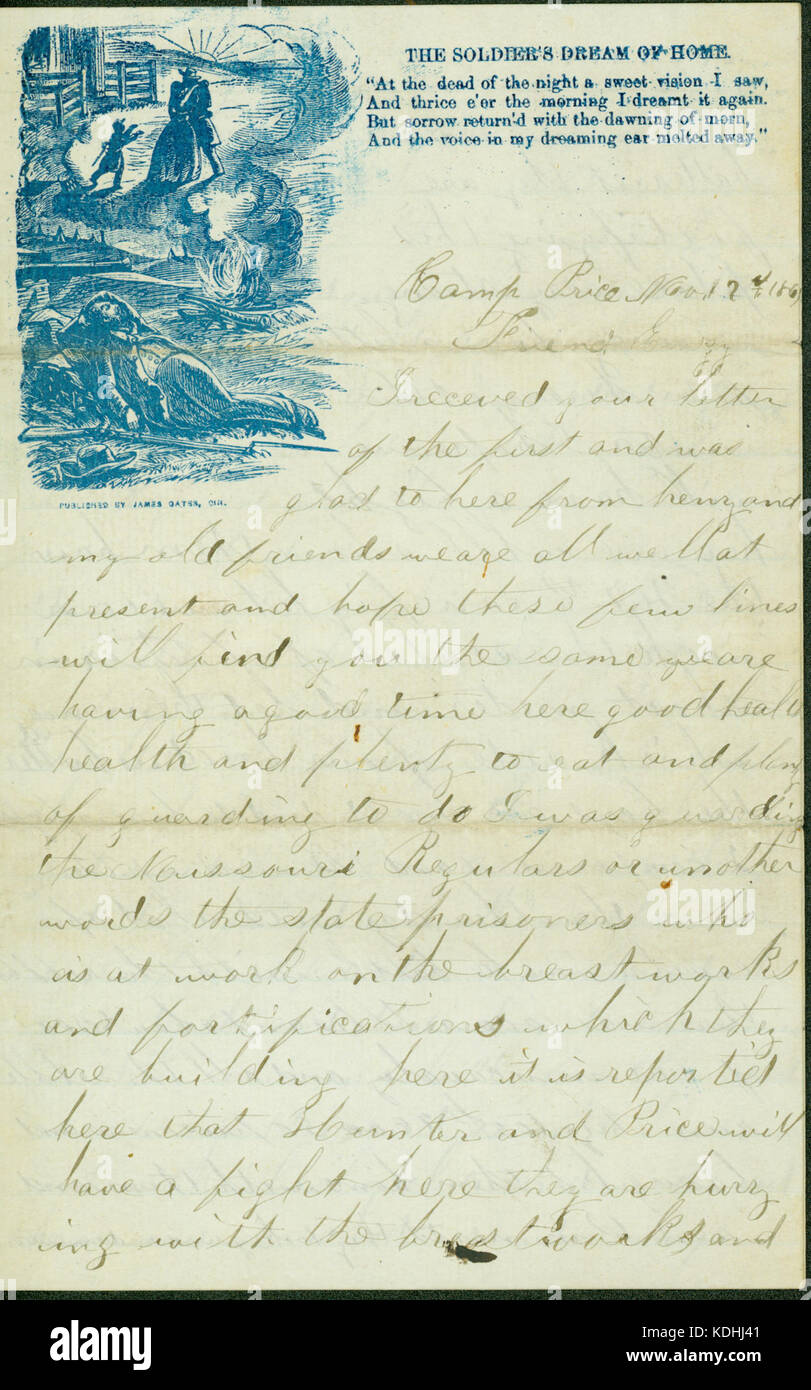 THE SOLDIER'S DREAM OF HOME.
"At the dead of the night a sweet vision I saw,
And thrice e'er the morning I dreamt it again.
But sorrow return'd with the dawning of morn,
And the voice in my dreaming ear melted away."
PUBLISHED BY JAMES GATES, CIN.
Camp Price Nov
Friend
I receved your letter
of the first and was
glad to here from henry and
my old friends we are all well at
present and hope these few lines
will find you the same we are
having a good time here good healt
health and plenty to eat and plenty
of guarding to do I was guarding
the Missouri Regulars or in other
words the state prisoners who
is at work on the breast works
and fortifications which they
are building here it is reported
here that Hunter and Price will
have a fight here they are hurry
ing with the breastworks and
alamy
Image ID: KDHJ41
www.alamy.com